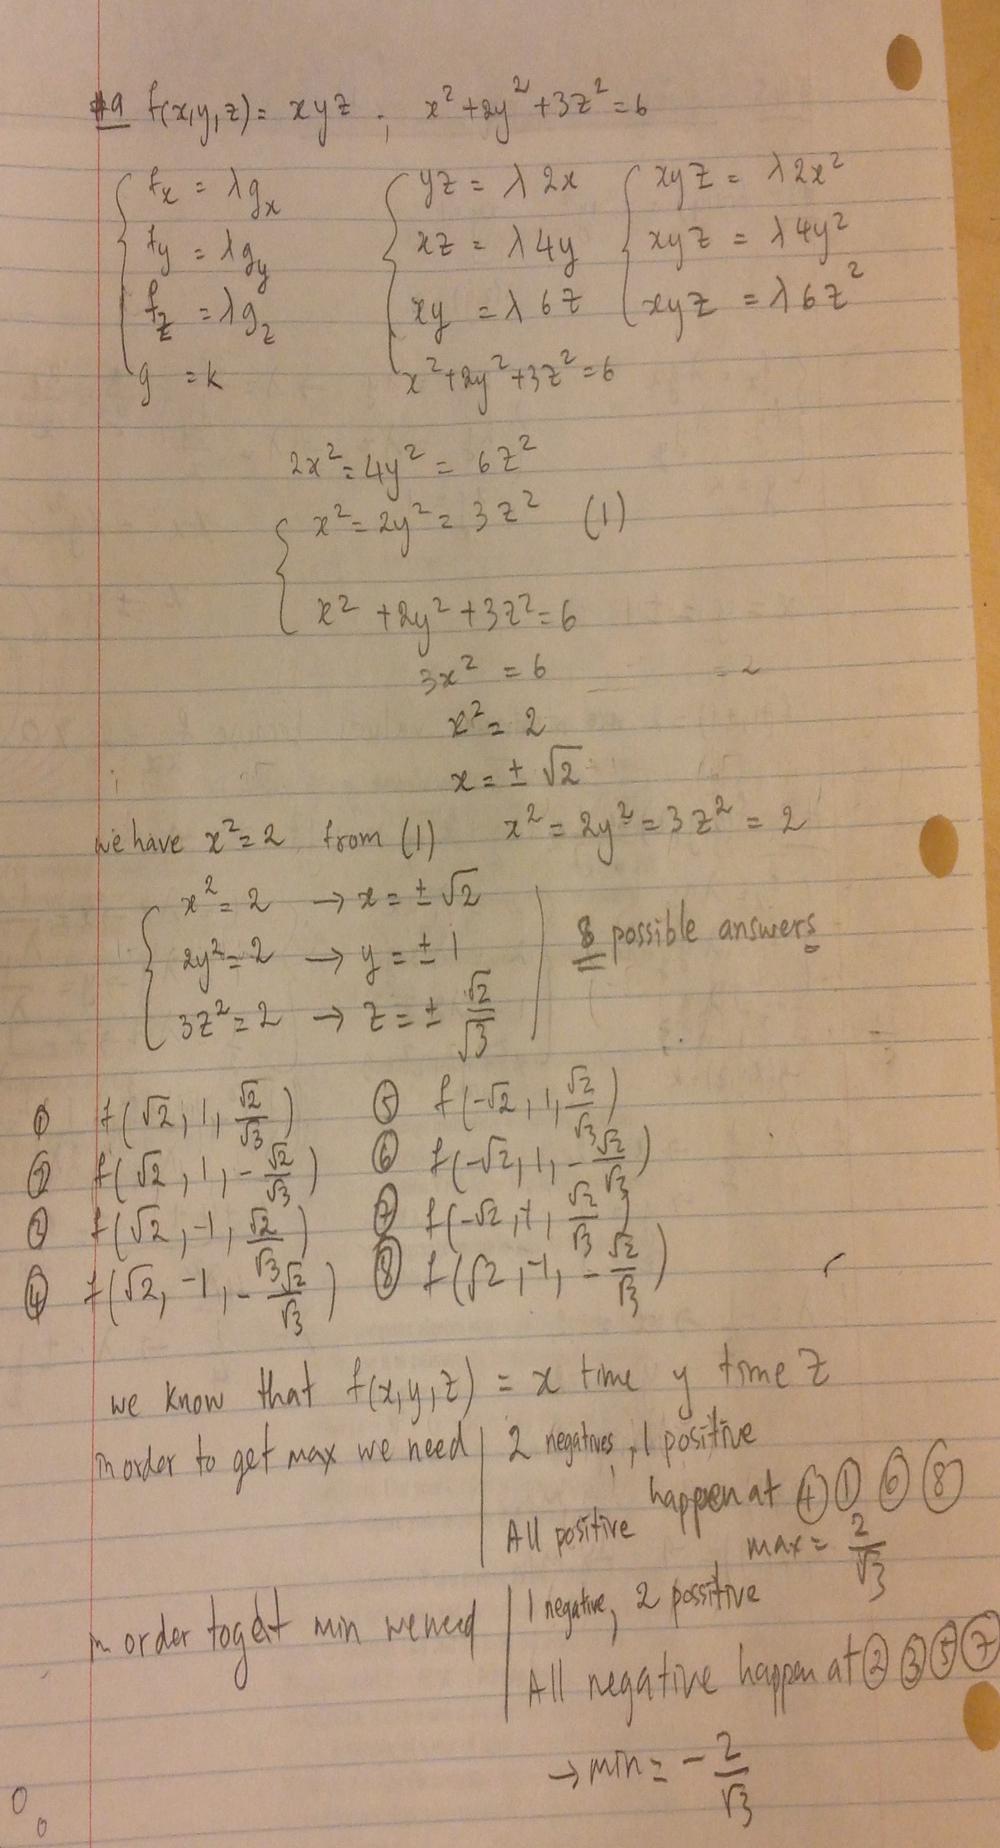 #9 f(x,y,z) = xyz ; x²+2y²+3z²=6
{ fx = λgx { yz = λ2x { xyz = λ2x²
fy = λgy xz = λ4y xyz = λ4y²
fz = λgz xy = λ6z xyz = λ6z²
g = k x²+2y²+3z²=6
2x²=4y²=6z²
{ x²=2y²=3z² (1)
x²+2y²+3z²=6
3x²=6
x²=2
x=±√2
we have x²=2 from (1) x²=2y²=3z²=2
{ x²=2 → x=±√2
2y²=2 → y=±1 | 8 possible answers
3z²=2 → z=± √2/√3
① f(√2, 1, √2/√3) ⑤ f(-√2, 1, √2/√3)
② f(√2, 1, -√2/√3) ⑥ f(-√2, 1, -√2/√3)
③ f(√2, -1, √2/√3) ⑦ f(-√2, -1, √2/√3)
④ f(√2, -1, -√2/√3) ⑧ f(√2, -1, -√2/√3)
we know that f(x,y,z) = x time y time z
in order to get max we need | 2 negatives, 1 positive
happen at ④ ① ⑥ ⑧
All positive
max = 2/√3
in order to get min we need | 1 negative, 2 possitive
All negative happen at ② ③ ⑤ ⑦
→ min = -2/√3